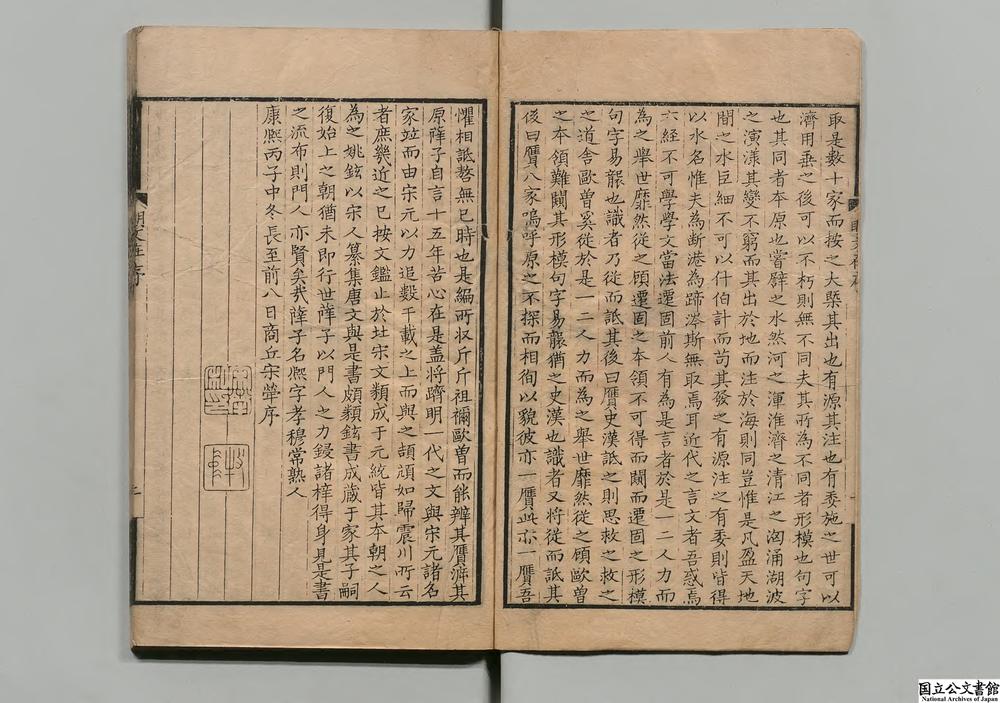 取是數十家而按之大槩其出也有源其注也有委施之世可以
濟用垂之後可以不朽則無不同夫其所為不同者形模也句字
也其同者本原也嘗辟之水然河之渾淮濟之清江之洶涌湖波
之演漾其變不窮而其出於地而注於海則同豈惟是凡盈天地
間之水巨細不可以什伯計而苟其發之有源注之有委則皆得
以水名惟夫為斷港為蹄涔斯無取焉耳近代之言文者吾惑焉
六經不可學學文當法遷固前人有為是言者於是一二人力而
為之舉世靡然從之顧遷固之本領不可得而闚而遷固之形模
句字易襲也識者乃從而詆其後曰贋史漢詆之則思救之救之
之道舍歐曽奚從於是一二人力而為之舉世靡然從之顧歐曽
之本領難闚其形模句字易襲猶之史漢也識者又將從而詆其
後曰贋八家嗚呼原之不探而相徇以貌彼亦一贋此亦一贋吾
懼相詆謷無已時也是編所収斤斤祖禰歐曽而能辨其贋泝其
原薛子自言十五年苦心在是盖將躋明一代之文與宋元諸名
家竝而由宋元以力追數千載之上而與之頡頏如歸震川所云
者庶幾近之已按文鑑止於北宋文類成于元統皆其本朝之人
為之姚鉉以宋人纂集唐文與是書頗類鉉書成藏于家其子嗣
復始上之朝猶未即行世薛子以門人之力鋟諸梓得身見是書
之流布則門人亦賢矣哉薛子名熙字孝穆常熟人
康熙丙子中冬長至前八日商丘宋犖序
国立公文書館
National Archives of Japan